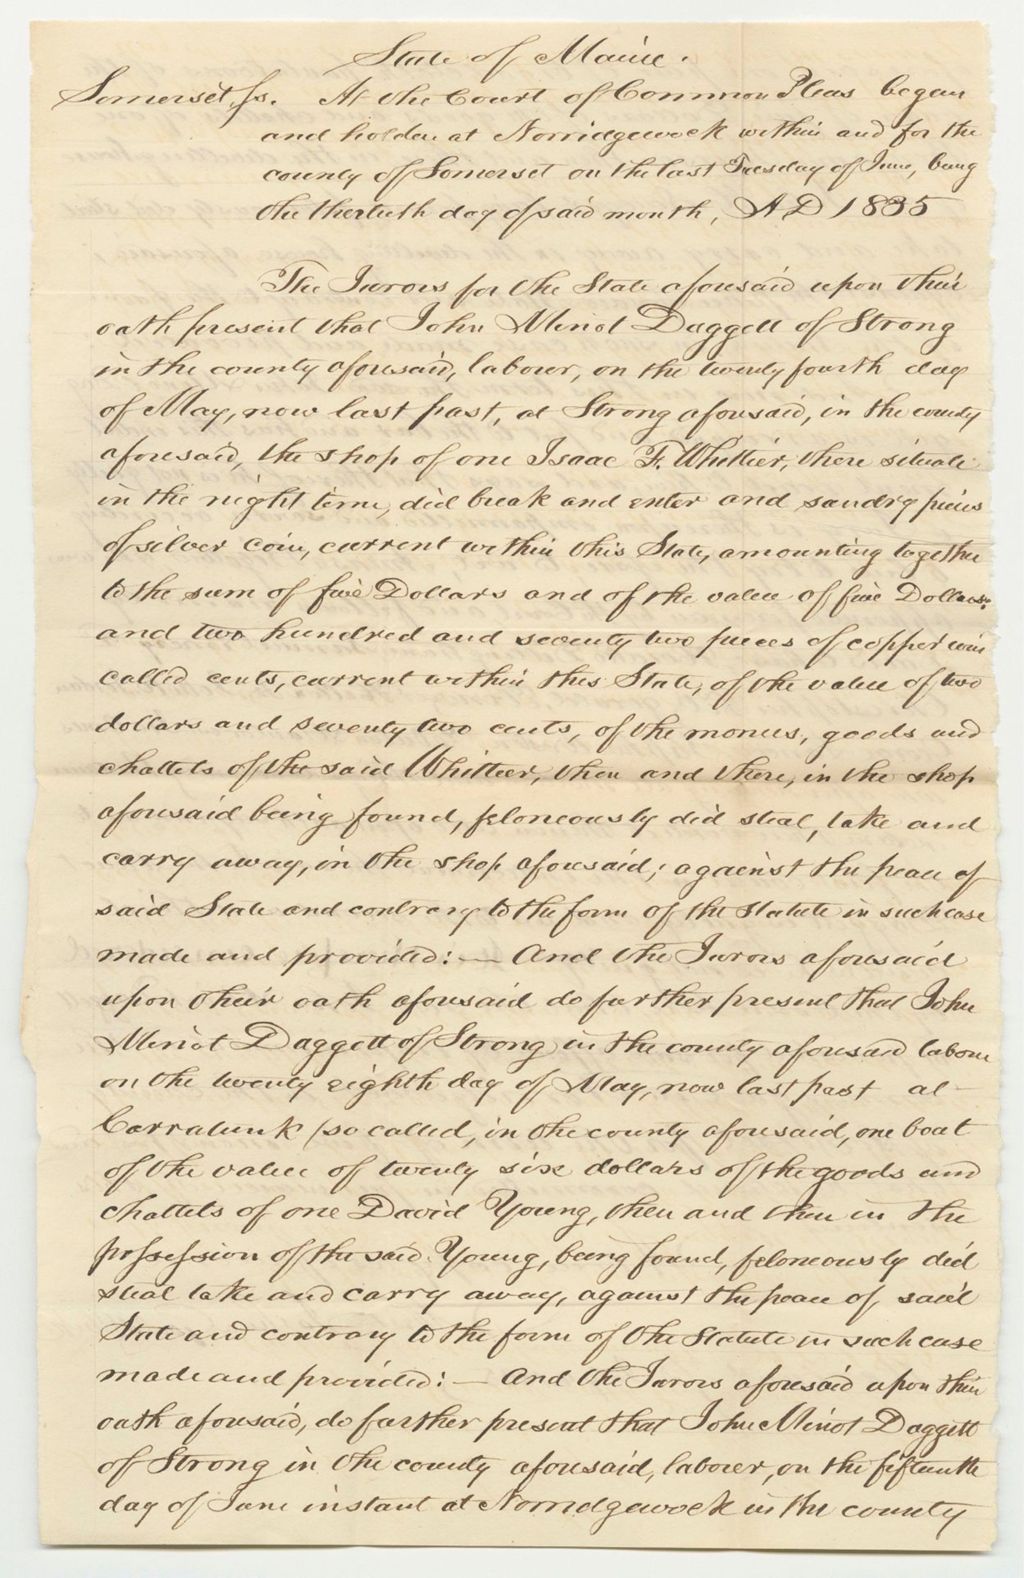 State of Maine.
Somerset, ss. At the Court of Common Pleas began
and holden at Norridgewock within and for the
county of Somerset on the last Tuesday of June, being
the thirtieth day of said month, A D 1835
The Jurors for the State aforesaid upon their
oath present that John Minot Daggett of Strong
in the county aforesaid, labourer, on the twenty fourth day
of May, now last past, at Strong aforesaid, in the county
aforesaid, the shop of one Isaac F. Whittier, there situate
in the night time, did break and enter and sundry pieces
of silver coin, current within this State, amounting together
to the sum of five Dollars and of the value of five Dollars;
and two hundred and seventy two pieces of copper coin
called cents, current within this State, of the value of two
dollars and seventy two cents, of the monies, goods and
chattels of the said Whittier, then and there, in the shop
aforesaid being found, feloneously did steal, take and
carry away, in the shop aforesaid; against the peace of
said State and contrary to the form of the statute in such case
made and provided: — And the Jurors aforesaid
upon their oath aforesaid do further present that John
Minot Daggett of Strong in the county aforesaid labourer
on the twenty eighth day of May, now last past at
Carratunk (so called, in the county aforesaid, one boat
of the value of twenty six dollars of the goods and
chattels of one David Young, then and then in the
possession of the said Young, being found, feloneously did
steal take and carry away, against the peace of said
State and contrary to the form of the Statute in such case
made and provided: — And the Jurors aforesaid upon their
oath aforesaid, do further present that John Minot Daggett
of Strong in the county aforesaid, laborer, on the fifteenth
day of June instant at Norridgewock in the county